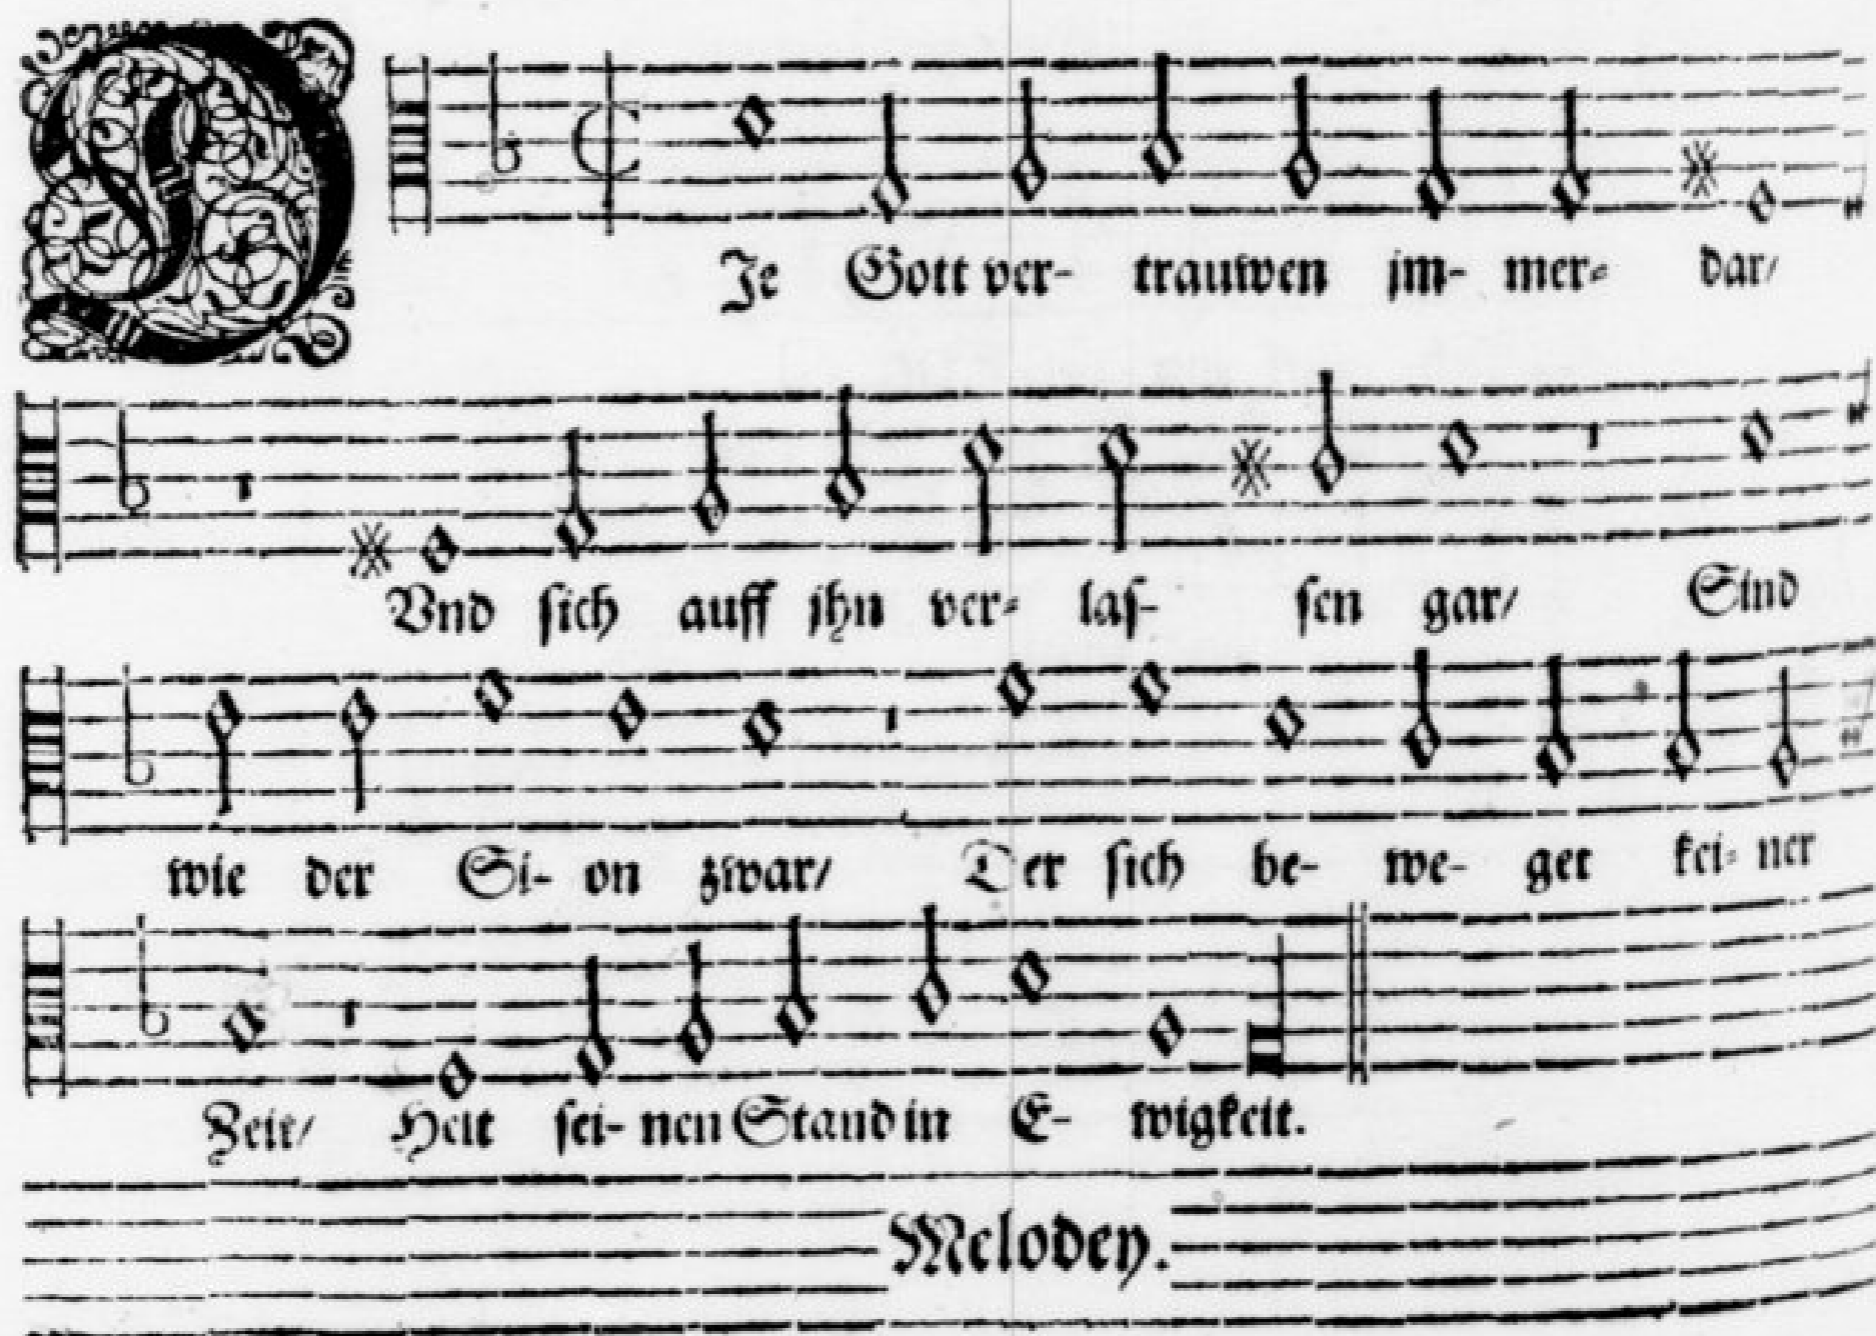 DJe Gott ver- trauwen jm- mer- dar/
Vnd sich auff jhn ver- las- sen gar/ Sind
wie der Si- on zwar/ Der sich be- we- get kei- ner
Zeit/ Helt sei- nen Stand in E- wigkeit.
Melodey.